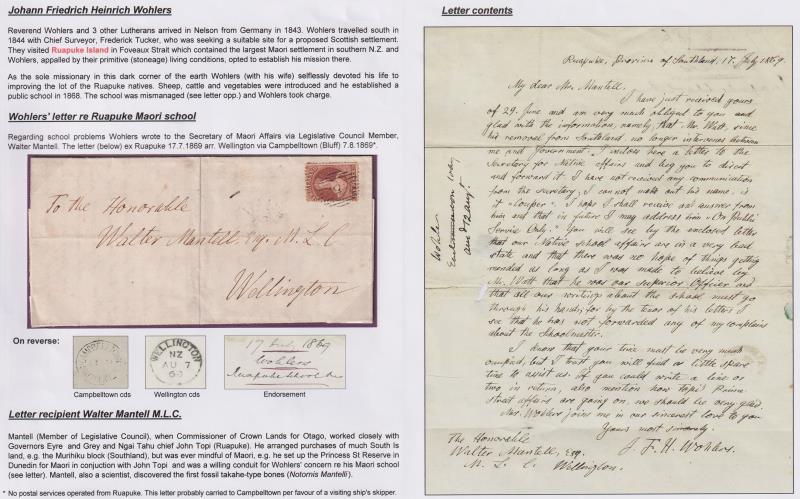 Johann Friedrich Heinrich Wohlers
Reverend Wohlers and 3 other Lutherans arrived in Nelson from Germany in 1843. Wohlers travelled south in
1844 with Chief Surveyor, Frederick Tucker, who was seeking a suitable site for a proposed Scottish settlement.
They visited Ruapuke Island in Foveaux Strait which contained the largest Maori settlement in southern N.Z. and
Wohlers, appalled by their primitive (stoneage) living conditions, opted to establish his mission there.
As the sole missionary in this dark corner of the earth Wohlers (with his wife) selflessly devoted his life to
improving the lot of the Ruapuke natives. Sheep, cattle and vegetables were introduced and he established a
public school in 1868. The school was mismanaged (see letter opp.) and Wohlers took charge.
Wohlers' letter re Ruapuke Maori school
Regarding school problems Wohlers wrote to the Secretary of Maori Affairs via Legislative Council Member,
Walter Mantell. The letter (below) ex Ruapuke 17.7.1869 arr. Wellington via Campbelltown (Bluff) 7.8.1869*.
To the Honorable
Walter Mantell, Esq. M. L. C
Wellington
On reverse:
WELLINGTON
NZ
AU 7
69
17 July 1869
Wohlers
Ruapuke School
Campbelltown cds
Wellington cds
Endorsement
Letter recipient Walter Mantell M.L.C.
Mantell (Member of Legislative Council), when Commissioner of Crown Lands for Otago, worked closely with
Governors Eyre and Grey and Ngai Tahu chief John Topi (Ruapuke). He arranged purchases of much South Is
land, e.g. the Murihiku block (Southland), but was ever mindful of Maori, e.g. he set up the Princess St Reserve in
Dunedin for Maori in conjuction with John Topi and was a willing conduit for Wohlers' concern re his Maori school
(see letter). Mantell, also a scientist, discovered the first fossil takahe-type bones (Notornis Mantelli').
* No postal services operated from Ruapuke. This letter probably carried to Campbelltown per favour of a visiting ship's skipper.
Letter contents
Ruapuke, Province of Southland, 17. July 1869.
My dear Mr. Mantell.
I have just received yours
of 29. June and am very much obliged to you and
glad with the information, namely, that Mr. Watt, since
his removal from Southland no longer intervenes between
me and Government. I enclose here a letter to the
Secretary for Native affairs and beg you to direct
and forward it. I have not received any communication
from the secretary, I can not make out his name, is
it "Couper". I hope I shall receive an answer from
him and that in future I may address him "On Public
Service Only." You will see by the enclosed letter
that our Native school affairs are in a very bad
state and that there was no hope of things getting
mended as long as I was made to believe by
Mr. Watt that he was our superior Officer and
that all our writings about the school must go
through his hands; for by the tenor of his letters I
see that he has not forwarded any of my complaints
about the Schoolmaster.
I know that your time must be very much
occupied, but I trust you will find as little spare
time to assist us. If you could write a line or
two in return, also mention how Topi's Prince
street affairs are going on, we should be very glad.
Mrs. Wohlers joins me in our sincerest love to you
Yours most sincerely
J. F. H. Wohlers.
The Honorable
Walter Mantell, Esq.
M. L. C. Wellington.
Wohlers